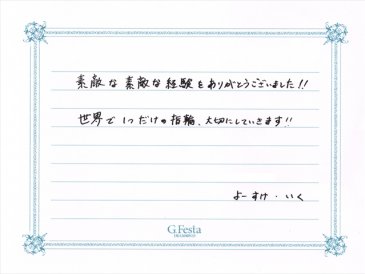 素敵な素敵な経験をありがとうございました!!
世界で1つだけの指輪、大切にしていきます!!
よーすけ・いく
G.Festa